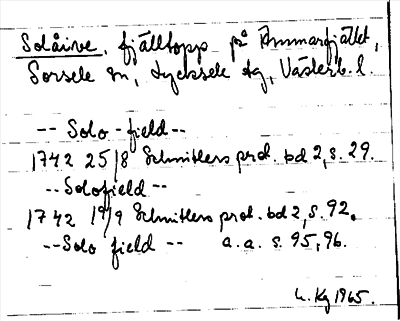 Solåive, fjälltopp på Ammarfjället,
Sorsele sn, Lycksele tg, Västerb. l.
-- Solo-field --
1742 25/8 Schnitlers prot. bd 2, s. 29.
-- Solofield --
1742 19/9 Schnitlers prot. bd 2, s. 92.
-- Solo field -- a. a. s. 95, 96.
Kg 1965.